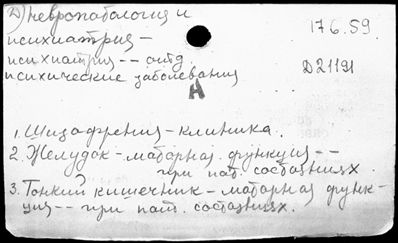 Д) невропатология и
психиатрия –
психиатрия -- отд.
психические заболевания
176.59
D21191
A
1. Шизофрения – клиника.
2. Желудок – моторная функция --
при пат. состояниях.
3. Тонкий кишечник – моторная функ-
ция -- при пат. состояниях.